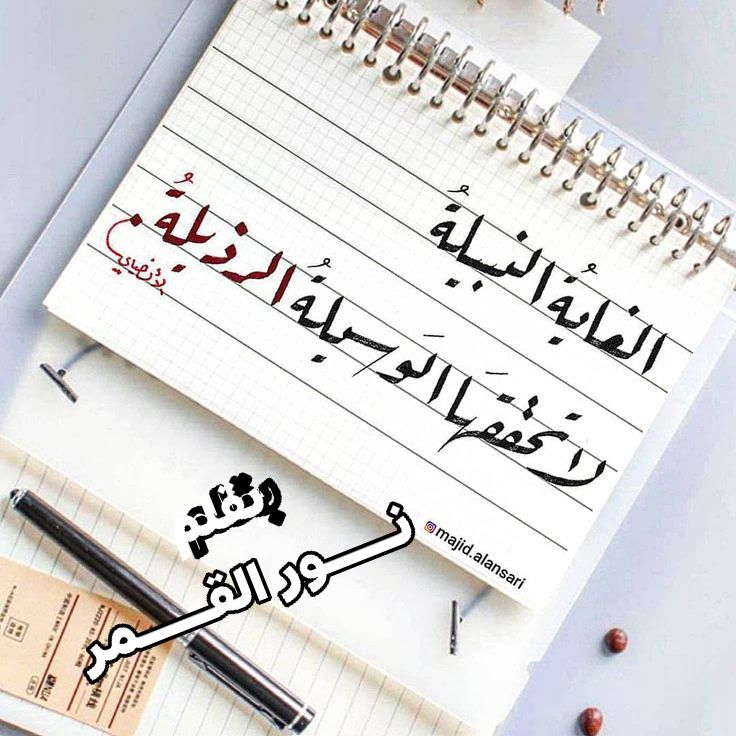 الغايةُ النبيلةُ
لا تحققهَا الوَسيلةُ الرذيلةُ.
الأنصاري
majid.alansari
بقلم
نور القمر